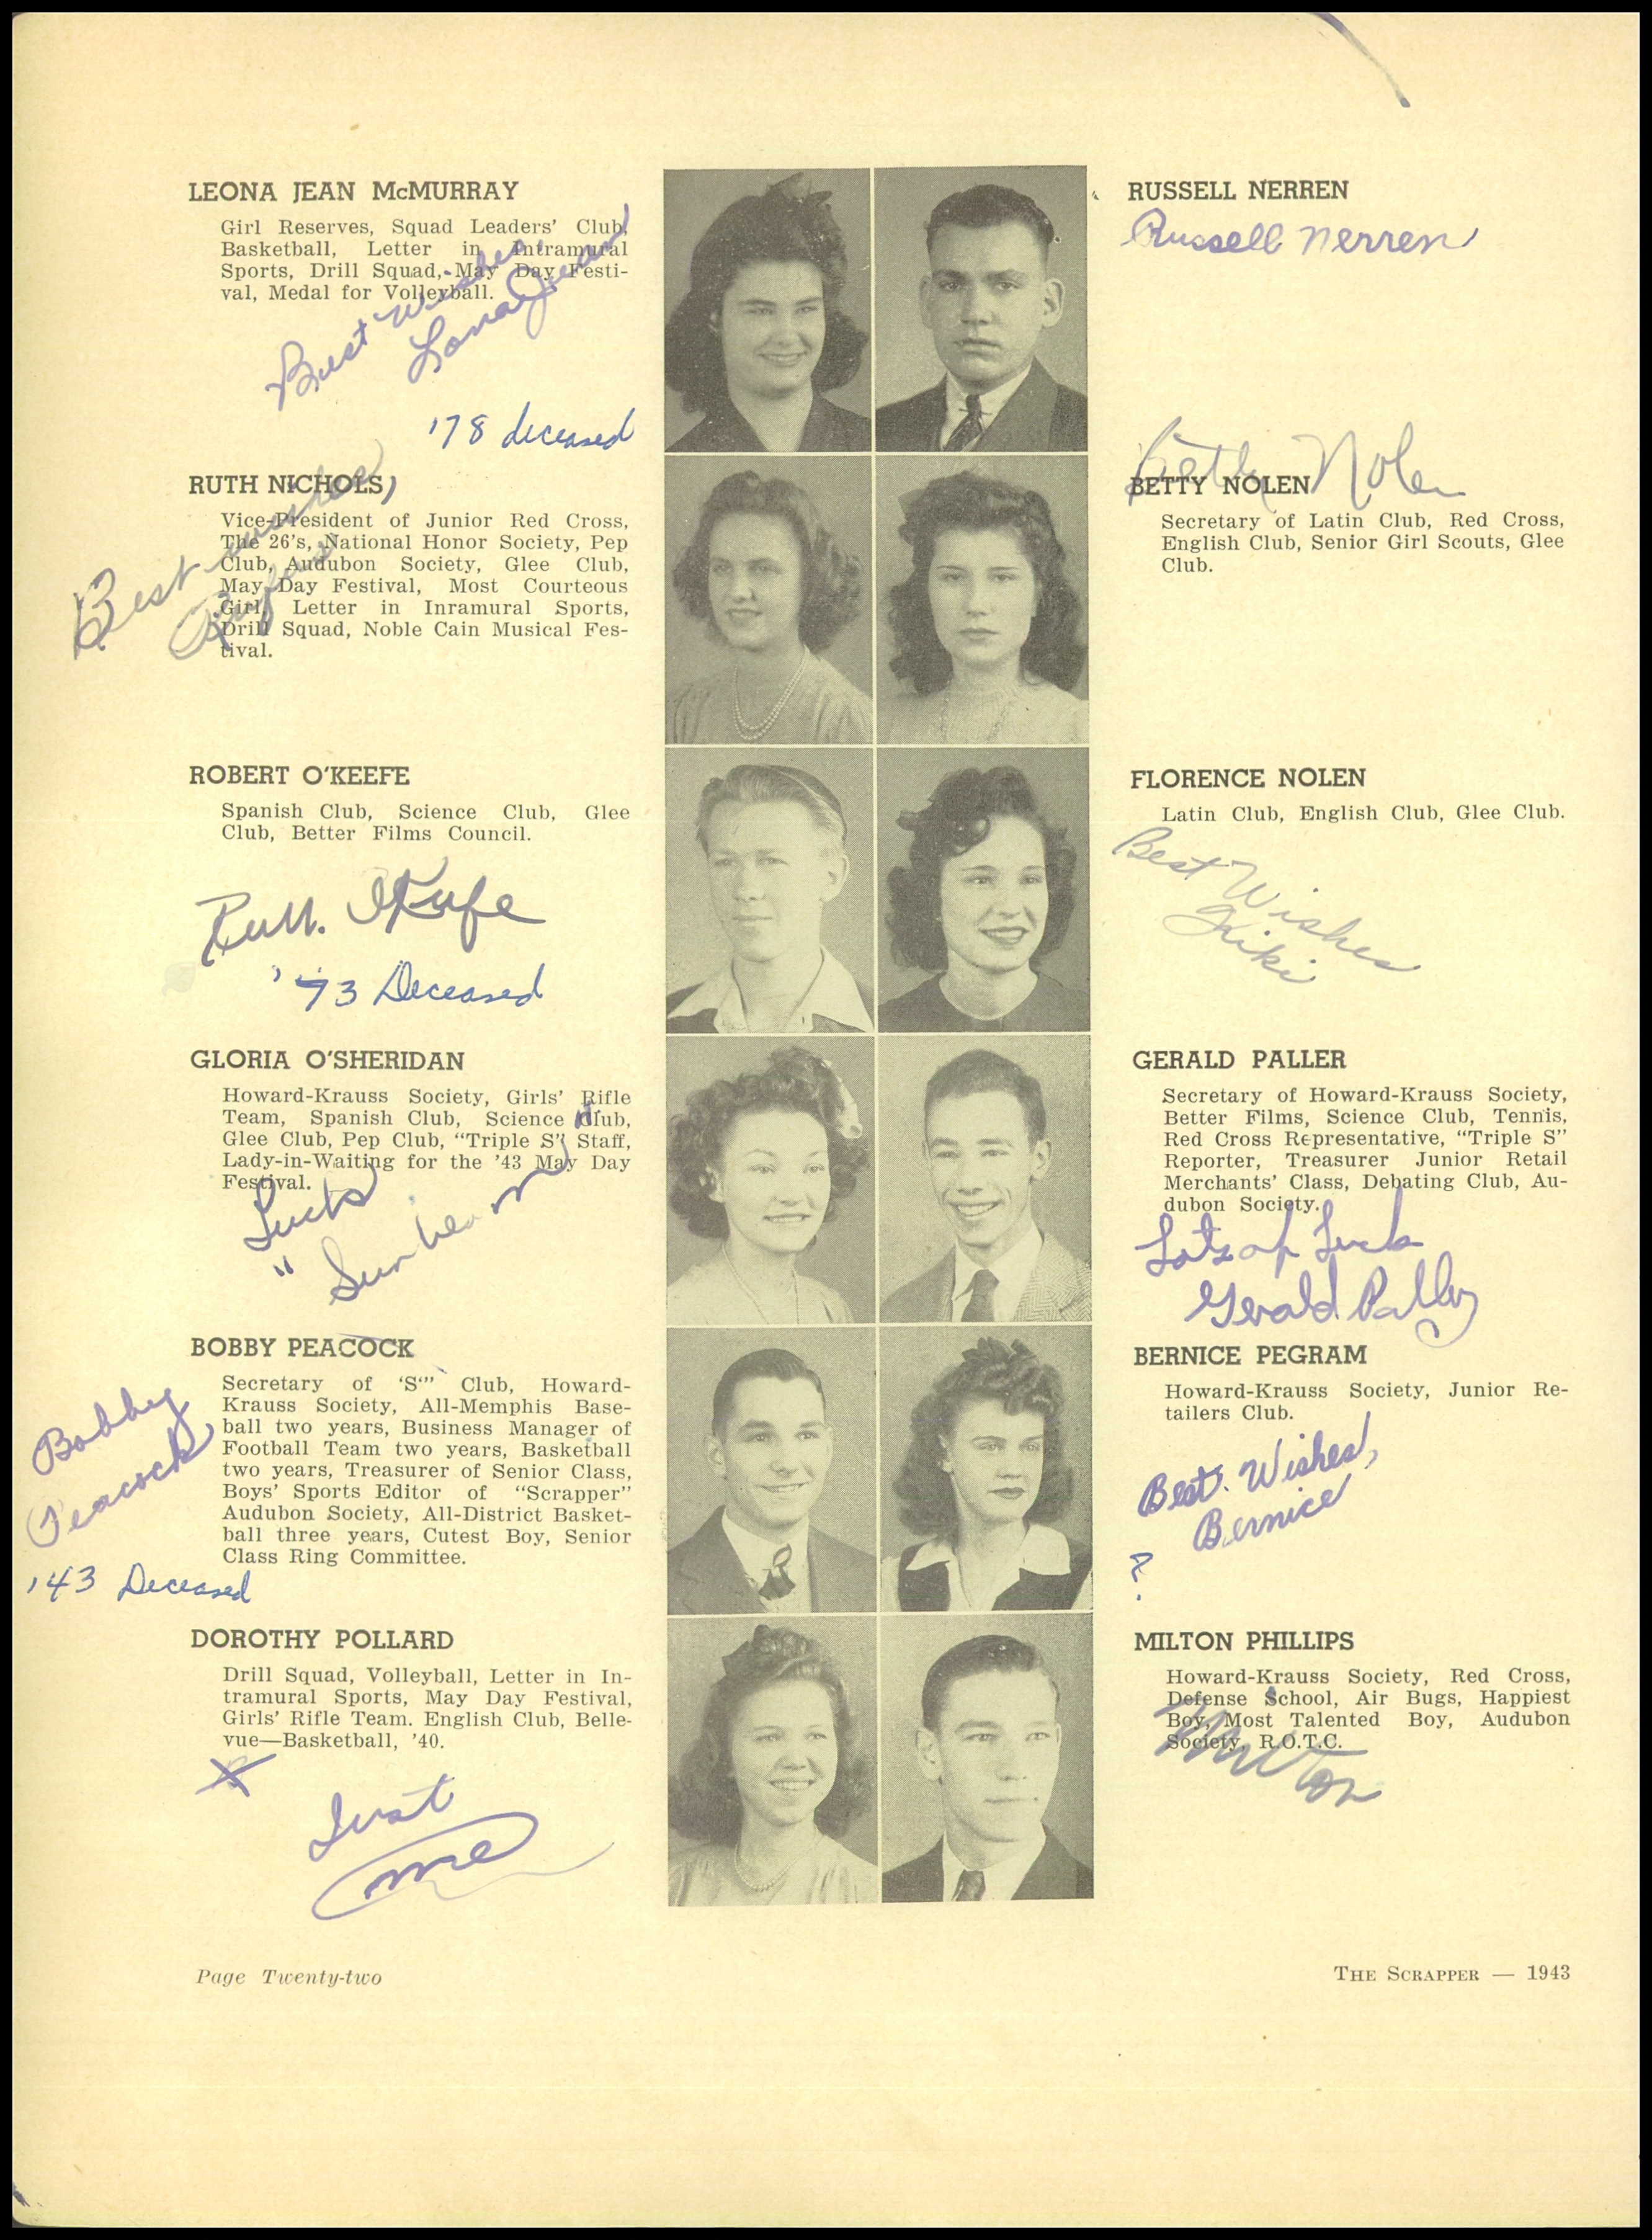 LEONA JEAN McMURRAY
Girl Reserves, Squad Leaders' Club,
Basketball, Letter in Intramural
Sports, Drill Squad, May Day Festi-
val, Medal for Volleyball.
Best Wishes,
Lona Jean
'78 deceased
RUTH NICHOLS
Vice-President of Junior Red Cross,
The 26's, National Honor Society, Pep
Club, Audubon Society, Glee Club,
May Day Festival, Most Courteous
Girl, Letter in Inramural Sports,
Drill Squad, Noble Cain Musical Fes-
tival.
Best wishes,
ROBERT O'KEEFE
Spanish Club, Science Club, Glee
Club, Better Films Council.
O'Keefe
'73 Deceased
GLORIA O'SHERIDAN
Howard-Krauss Society, Girls' Rifle
Team, Spanish Club, Science Club,
Glee Club, Pep Club, "Triple S" Staff,
Lady-in-Waiting for the '43 May Day
Festival.
Luck
BOBBY PEACOCK
Secretary of 'S'" Club, Howard-
Krauss Society, All-Memphis Base-
ball two years, Business Manager of
Football Team two years, Basketball
two years, Treasurer of Senior Class,
Boys' Sports Editor of "Scrapper"
Audubon Society, All-District Basket-
ball three years, Cutest Boy, Senior
Class Ring Committee.
Bobby
Peacock
'43 Deceased
DOROTHY POLLARD
Drill Squad, Volleyball, Letter in In-
tramural Sports, May Day Festival,
Girls' Rifle Team. English Club, Belle-
vue—Basketball, '40.
Just
me
RUSSELL NERREN
Russell Nerren
BETTY NOLEN
Betty Nolen
Secretary of Latin Club, Red Cross,
English Club, Senior Girl Scouts, Glee
Club.
FLORENCE NOLEN
Latin Club, English Club, Glee Club.
Best Wishes
Kiki
GERALD PALLER
Secretary of Howard-Krauss Society,
Better Films, Science Club, Tennis,
Red Cross Representative, "Triple S"
Reporter, Treasurer Junior Retail
Merchants' Class, Debating Club, Au-
dubon Society.
Lots of Luck
Gerald Paller
BERNICE PEGRAM
Howard-Krauss Society, Junior Re-
tailers Club.
Best Wishes,
Bernice
?
MILTON PHILLIPS
Howard-Krauss Society, Red Cross,
Defense School, Air Bugs, Happiest
Boy, Most Talented Boy, Audubon
Society, R.O.T.C.
Milton
Page Twenty-two
THE SCRAPPER — 1943